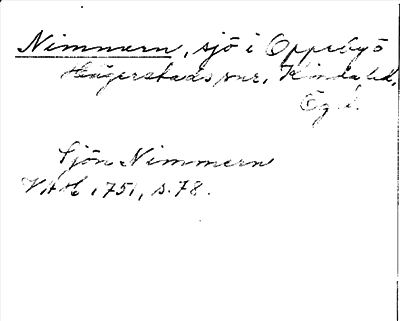 Nimmern, sjö i Oppeby o
Hägerstads snr, Kinda hd,
Ög l.
Sjön Nimmern
VAH 1751, s. 78.